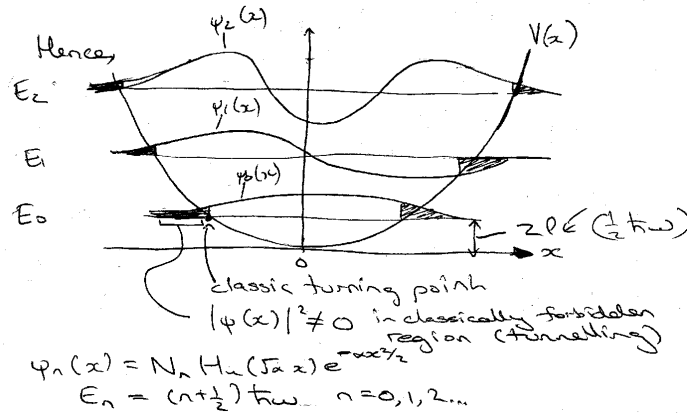 ψ₂(x)
Hence,
V(x)
E₂
ψ₁(x)
E₁
ψ₀(x)
E₀
ZPE (½ħω)
x
0
classic turning point
|ψ(x)|² ≠ 0 in classically forbidden
region (tunnelling)
ψₙ(x) = Nₙ Hₙ(√α x) e^(-αx²/2)
Eₙ = (n+½) ħω n=0,1,2...